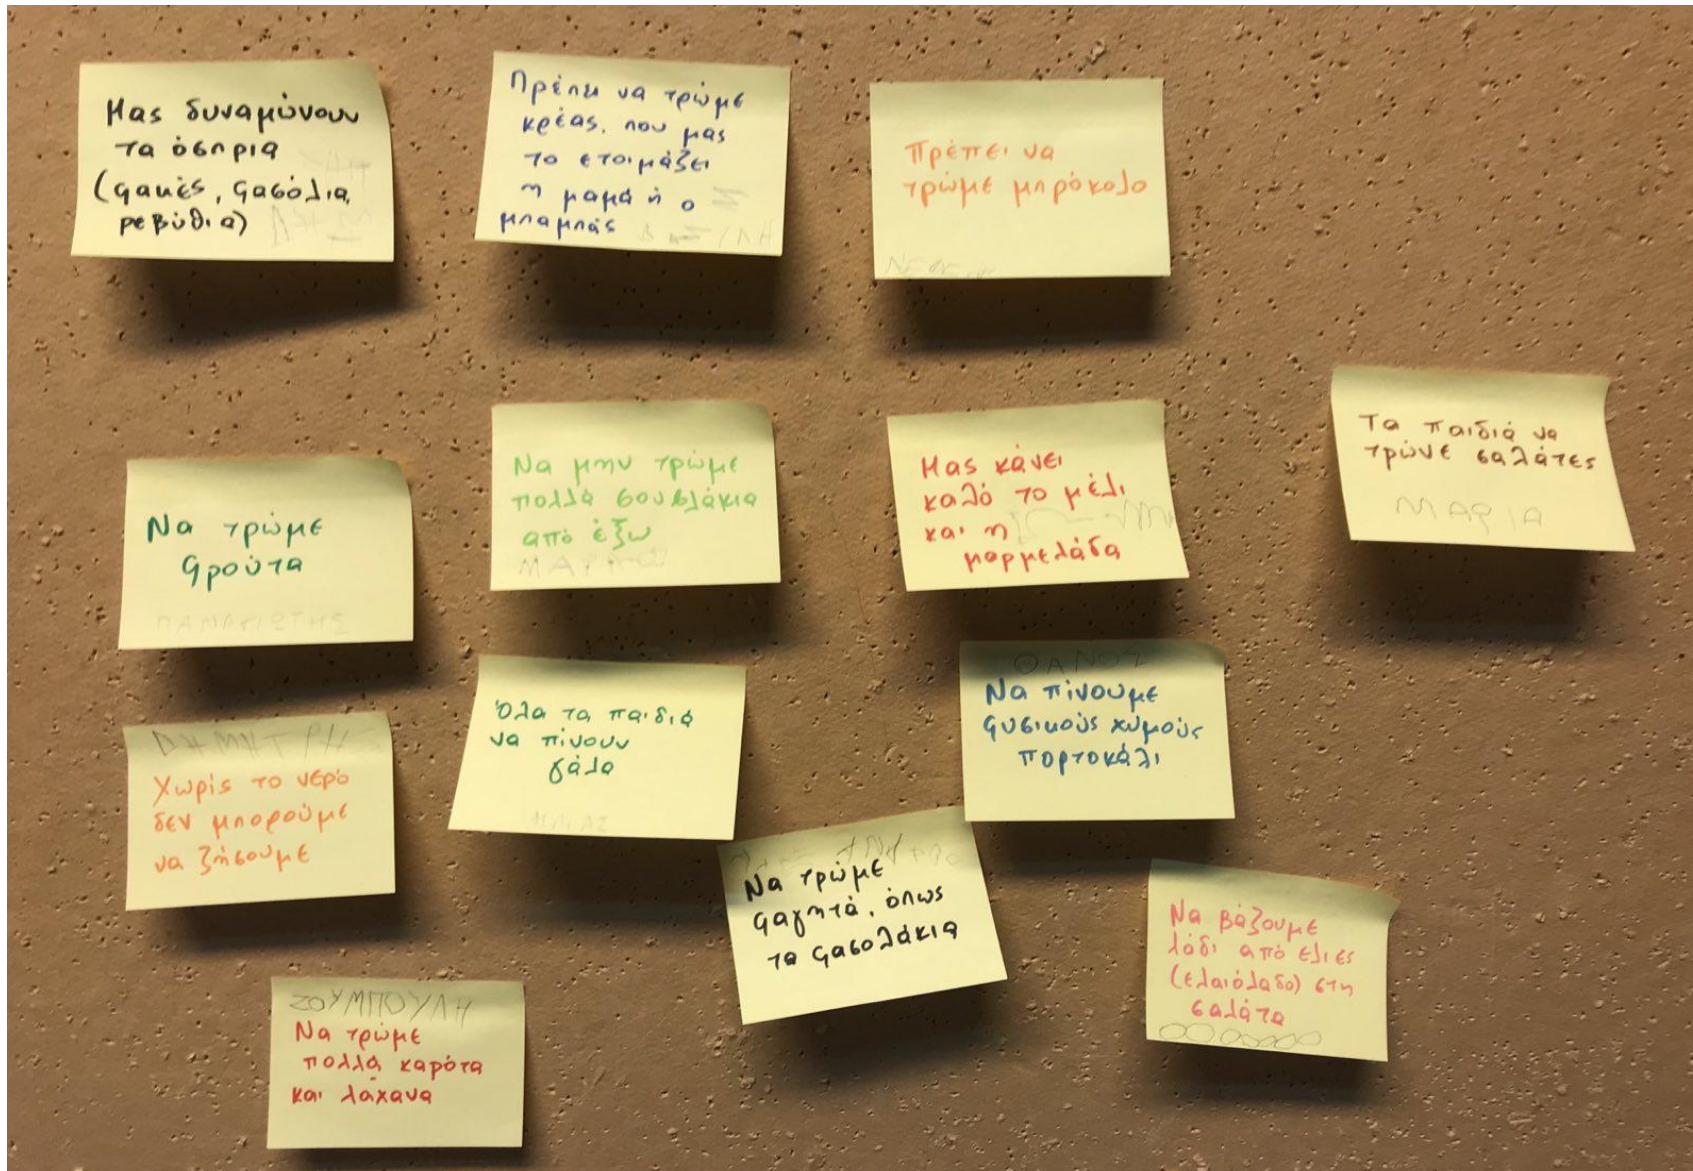 Μας δυναμώνουν
τα όσπρια
(φακές, φασόλια,
ρεβύθια)
Πρέπει να τρώμε
κρέας, που μας
το ετοιμάζει
η μαμά ή ο
μπαμπάς
Πρέπει να
τρώμε μπρόκολο
Να τρώμε
φρούτα
ΠΑΝΑΓΙΩΤΗΣ
Να μην τρώμε
πολλά σουβλάκια
από έξω
Μας κάνει
καλό το μέλι
και η
μαρμελάδα
Τα παιδιά να
τρώνε σαλάτες
ΜΑΡΙΑ
ΔΗΜΗΤΡΗΣ
Χωρίς το νερό
δεν μπορούμε
να ζήσουμε
Όλα τα παιδιά
να πίνουν
γάλα
ΘΑΝΟΣ
Να πίνουμε
φυσικούς χυμούς
πορτοκάλι
Να τρώμε
φαγητά, όπως
τα φασολάκια
Να βάζουμε
λάδι από ελιές
(ελαιόλαδο) στη
σαλάτα
ΖΟΥΜΠΟΥΛΗ
Να τρώμε
πολλά καρότα
και λάχανα